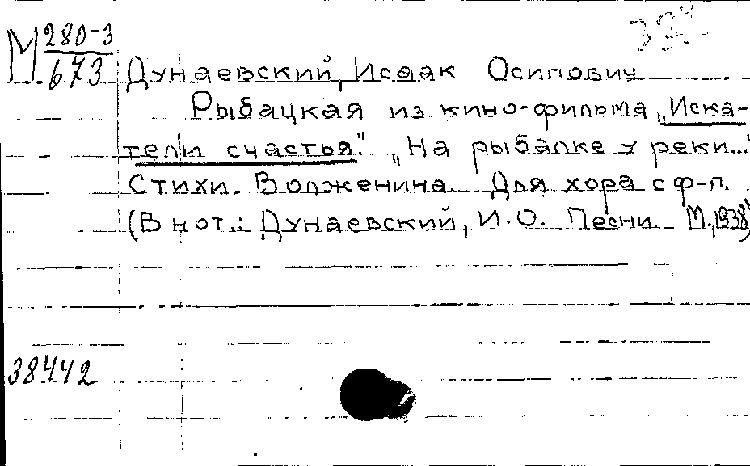 М 280-3
673
Дунаевский, Исаак Осипович
Рыбацкая из кино-фильма „Иска-
тели счастья". „На рыбалке у реки..."
Стихи Волженина. Для хора с ф-п.
(В нот.: Дунаевский, И.О. Песни. М., 1938)
38442